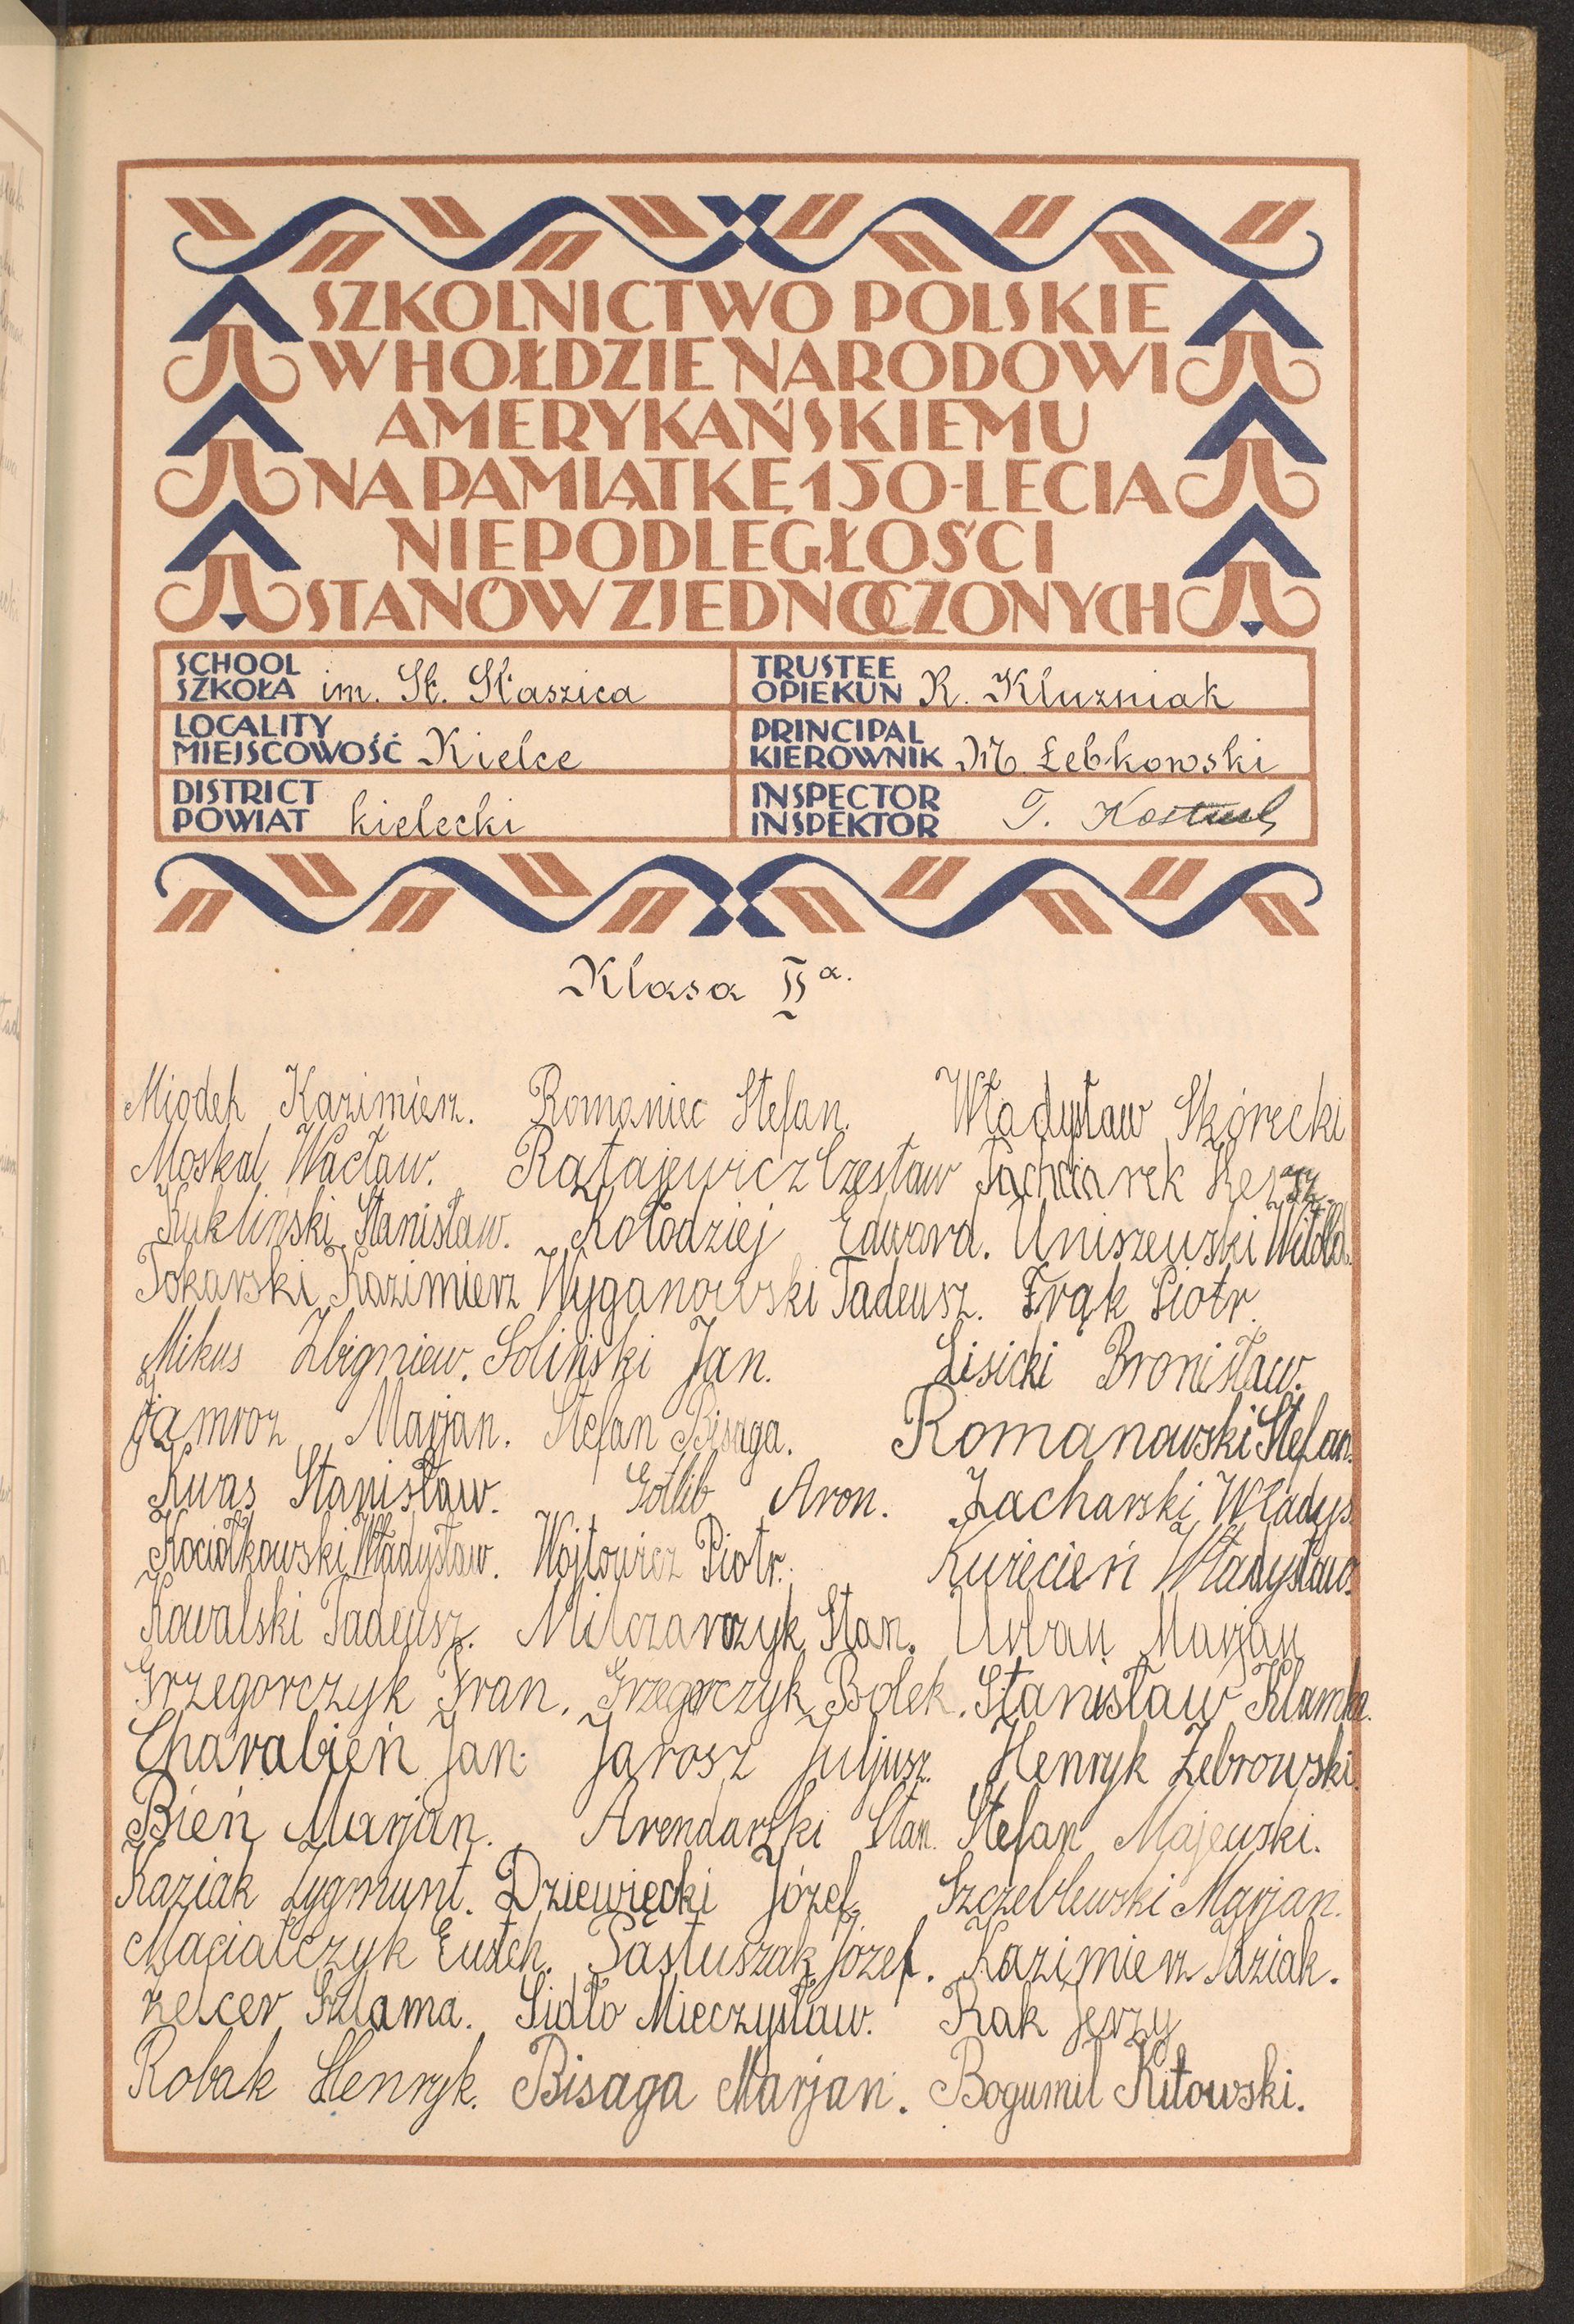 SZKOLNICTWO POLSKIE
W HOŁDZIE NARODOWI
AMERYKAŃSKIEMU
NA PAMIĄTKĘ 150-LECIA
NIEPODLEGŁOŚCI
STANÓW ZJEDNOCZONYCH
SCHOOL
SZKOŁA im. St. Staszica
TRUSTEE
OPIEKUN K. Kluzniak
LOCALITY
MIEJSCOWOŚĆ Kielce
PRINCIPAL
KIEROWNIK M. Łebkowski
DISTRICT
POWIAT kielecki
INSPECTOR
INSPEKTOR T.
Klasa II a.
Miodek Kazimierz. Romaniec Stefan. Władysław Skórecki
Moskal Wacław. Ratajewicz Czesław
Kukliński Stanisław. Kołodziej Edward. Uniszewski Witold.
Tokarski Kazimierz Wyganowski Tadeusz. Frąk Piotr.
Mikus Zbigniew. Soliński Jan. Lisicki Bronisław.
jamroz Marjan. Stefan Bisaga. Romanowski Stefan.
Kwas Stanisław. Gotlib Aron. Zacharski Władys.
Kociołkowski Władysław. Wojtowicz Piotr. Kwiecień Władysław.
Kowalski Tadeusz. Milczarczyk Stan. Urban Marjan
Grzegorczyk Fran. Grzegorczyk Bolek. Stanisław Klamka.
Charabień Jan. Jarosz Juljusz Henryk Żebrowski.
Bień Marjan. Arendarski Stan. Stefan Majewski.
Kaziak Zygmunt. Dziewięcki Józef. Szczeblewski Marjan.
Maciałczyk Eustch. Pastuszak Józef. Kazimierz Jaziak.
Zelcer Szlama. Sidło Mieczysław. Rak Jerzy
Robak Henryk. Bisaga Marjan. Bogumił Kitowski.